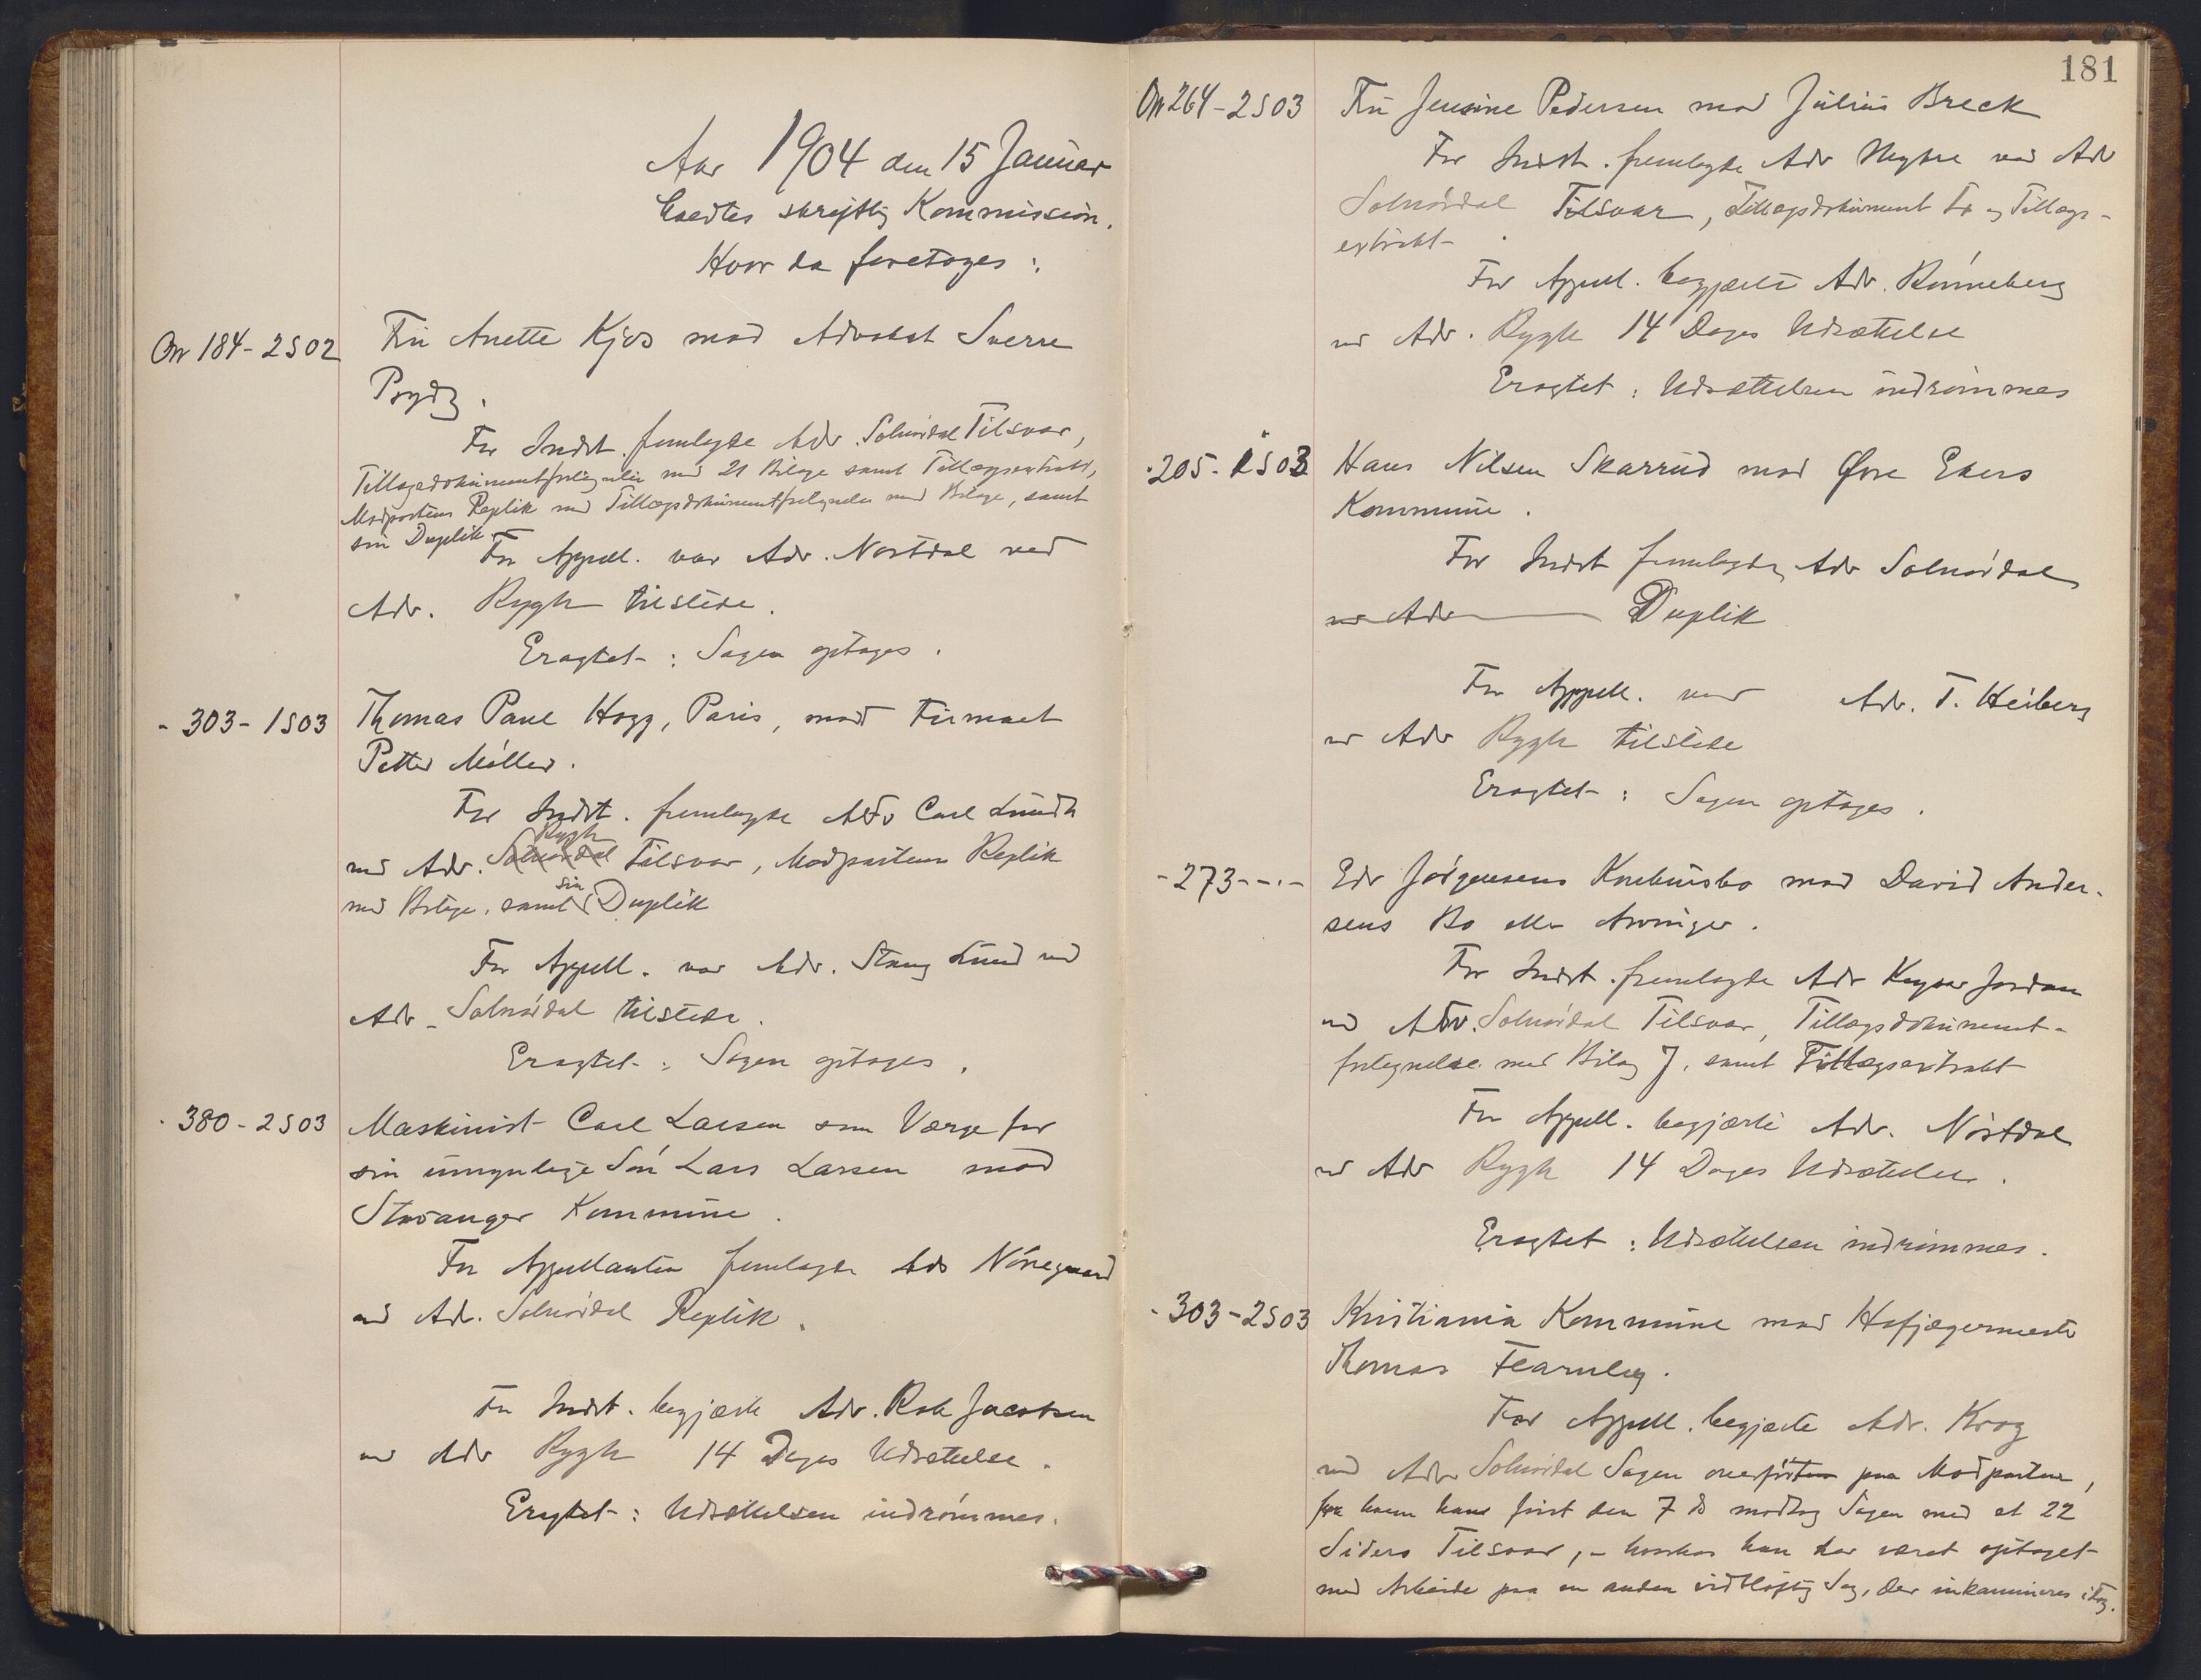 Aar 1904 den 15 Januar
holdtes skriftlig Kommission.
Hvor da foretoges:
On 184-2S02
Fru Anette Kjos mod Advokat Sverre
Prydz.
For Indst. fremlagde Adv. Solnørdal Tilsvar,
Tillægsdokumentfortegnelse med 21 Bilage samt Tillægsextrakt,
Modpartens Replik med Tillægsdokumentfortegnelse med Bilage, samt
sin Duplik.
For Appell. var Adv. Nørstdal ved
Adv. Rygh tilstede.
Eragtet: Sagen optages.
- 303-1S03
Thomas Paul Hogg, Paris, mod Firmaet
Petter Møller.
For Indst. fremlagde Adv Carl Lundh
Rygh
ved Adv. Solnørdal Tilsvar, Modpartens Replik
med Bilage, samt sin Duplik
For Appell. var Adv. Stang Lund ved
Adv. Solnørdal tilstede.
Eragtet: Sagen optages.
- 380-2S03
Maskinist Carl Larsen som Værge for
sin umyndige Søn Lars Larsen mod
Stavanger Kommune.
For Appellanten fremlagde Adv Nørregaard
ved Adv. Solnørdal Replik.
For Indst. begjærte Adv. Rob Jacobsen
ved Adv Rygh 14 Dages Udsættelse.
Eragtet: Udsættelsen indrømmes.
181
On 264-2S03
Fru Jensine Pedersen mod Julius Breck
For Indst. fremlagde Adv ved Adv
Solnørdal Tilsvar, Tillægsdokument og Tillægs-
extrakt
For Appell. begjærte Adv. Rønneberg
ved Adv. Rygh 14 Dages Udsættelse
Eragtet: Udsættelsen indrømmes
- 205-1S03
Hans Nilsen Skarrud mod Øvre Ekers
Kommune.
For Indst fremlagde Adv Solnørdal
ved Adv Duplik
For Appell. var Adv. T. Heiberg
ved Adv Rygh tilstede
Eragtet: Sagen optages.
- 273 - - -
Edv Jørgensens Konkursbo mod David Ander-
sens Bo eller Arvinger.
For Indst. fremlagde Adv Keyser Jordan
ved Adv. Solnørdal Tilsvar, Tillægsdokument-
fortegnelse med Bilag J, samt Tillægsextrakt
For Appell. begjærte Adv. Nørstdal
ved Adv Rygh 14 Dages Udsættelse.
Eragtet: Udsættelsen indrømmes.
- 303-2S03
Kristiania Kommune mod Hofjægermester
Thomas Fearnley.
For Appell. begjærte Adv. Krog
ved Adv Solnørdal Sagen overført paa Modparten,
fra hvem han først den 7 ds modtog Sagen med et 22
Siders Tilsvar, - hvorhos han har været optaget
med Arbeide paa en anden vidtløftig Sag, der inkamineres idag.